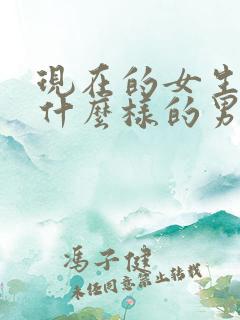 現在的女生
什麼樣的男
馮子健
未經同意禁止轉載